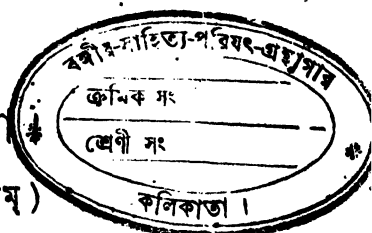 বঙ্গীয়-সাহিত্য-পরিষৎ-গ্রন্থাগার
ক্রমিক সং
শ্রেণী সং
ম্ )
কলিকাতা ।